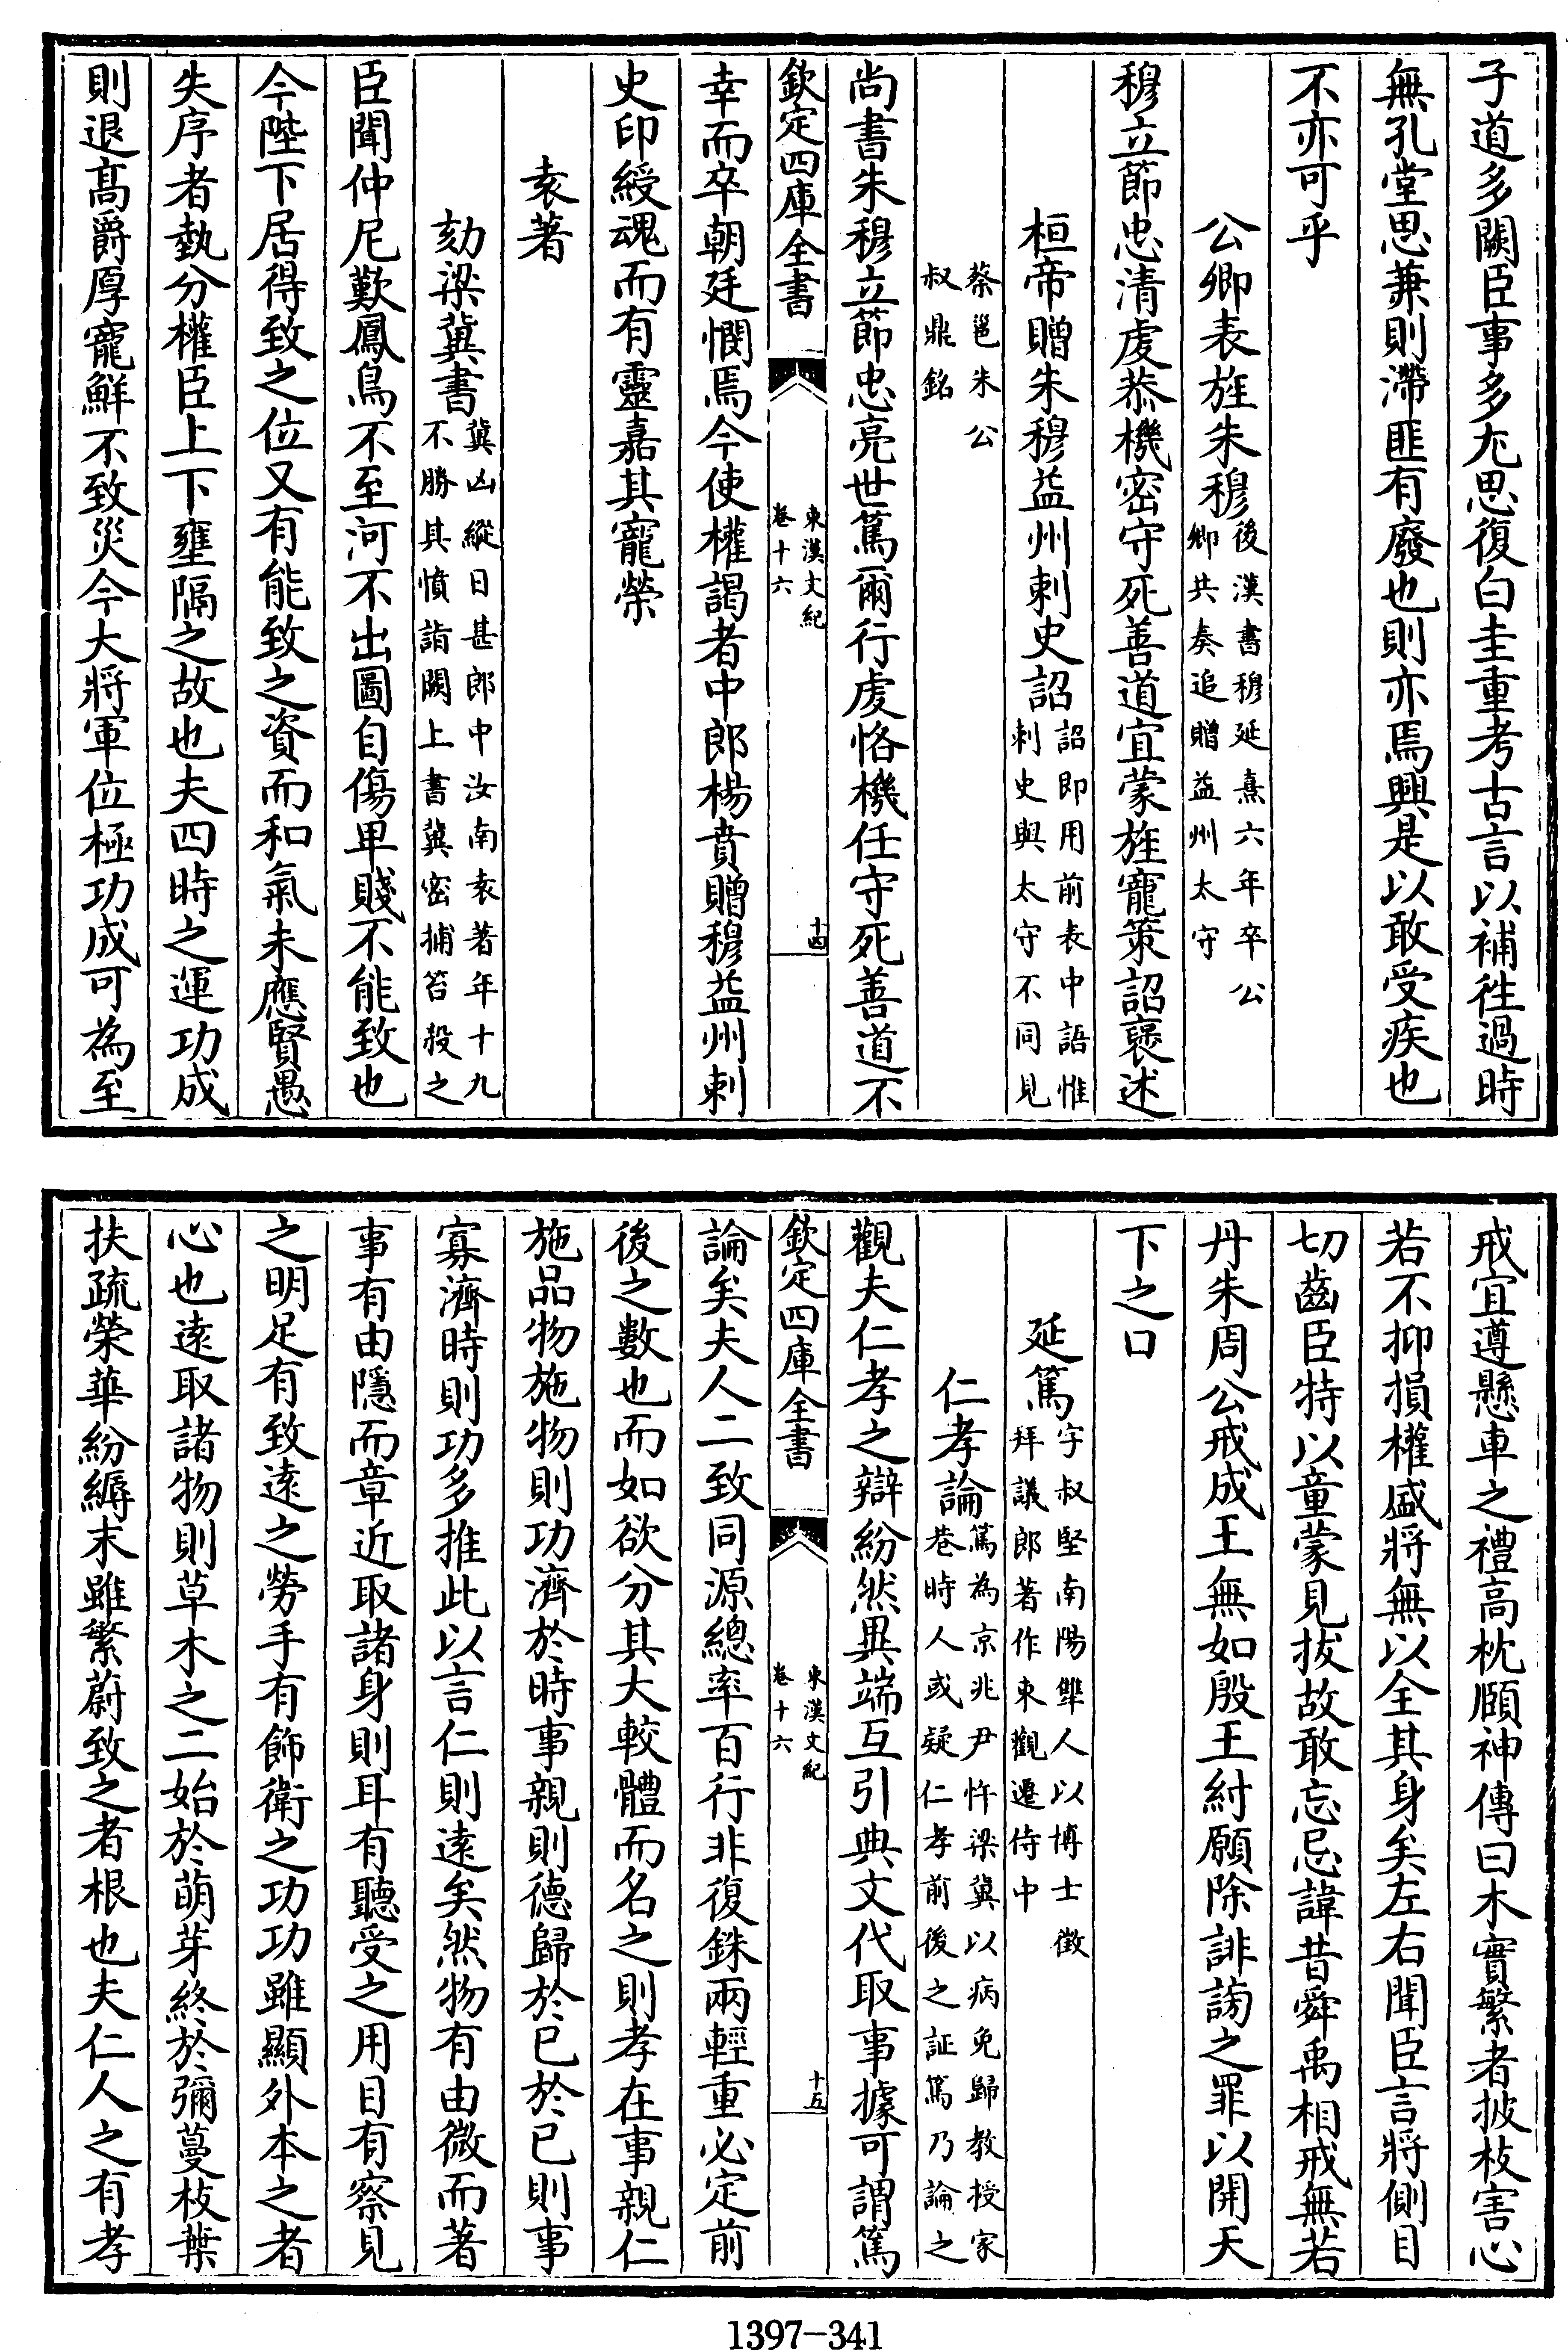 子道多闕臣事多尤思復白圭重考古言以補徃過時
無孔堂思兼則滯匪有廢也則亦焉興是以敢受疾也
不亦可乎
公卿表旌朱穆後漢書穆延熹六年卒公
卿共奏追贈益州太守
穆立節忠清虔恭機密守死善道宜蒙旌寵策詔襃述
桓帝贈朱穆益州刺史詔詔即用前表中語惟
刺史與太守不同見
蔡邕朱公
叔鼎銘
尚書朱穆立節忠亮世篤爾行虔恪機任守死善道不
欽定四庫全書
東漢文紀
卷十六
十四
幸而卒朝廷憫焉今使權謁者中郎楊賁贈穆益州刺
史印綬魂而有靈嘉其寵榮
袁著
劾梁冀書冀凶縱日甚郎中汝南袁著年十九
不勝其憤詣闕上書冀密捕笞殺之
臣聞仲尼歎鳳鳥不至河不出圖自傷卑賤不能致也
今陛下居得致之位又有能致之資而和氣未應賢愚
失序者埶分權臣上下壅隔之故也夫四時之運功成
則退髙爵厚寵鮮不致災今大將軍位極功成可為至
戒宜遵懸車之禮高枕頤神傳曰木實繁者披枝害心
若不抑損權盛將無以全其身矣左右聞臣言將側目
切齒臣特以童蒙見拔故敢忘忌諱昔舜禹相戒無若
丹朱周公戒成王無如殷王紂願除誹謗之罪以開天
下之口
延篤字叔堅南陽犨人以博士徵
拜議郎著作東觀遷侍中
仁孝論篤為京兆尹忤梁冀以病免歸教授家
巷時人或疑仁孝前後之証篤乃論之
觀夫仁孝之辯紛然異端互引典文代取事據可謂篤
欽定四庫全書
東漢文紀
卷十六
十五
論矣夫人二致同源總率百行非復銖兩輕重必定前
後之數也而如欲分其大較體而名之則孝在事親仁
施品物施物則功濟於時事親則德歸於已於已則事
寡濟時則功多推此以言仁則遠矣然物有由微而著
事有由隱而章近取諸身則耳有聽受之用目有察見
之明足有致遠之勞手有飾衛之功功雖顯外本之者
心也遠取諸物則草木之二始於萌芽終於彌蔓枝葉
扶疏榮華紛縟末雖繁蔚致之者根也夫仁人之有孝
1397-341